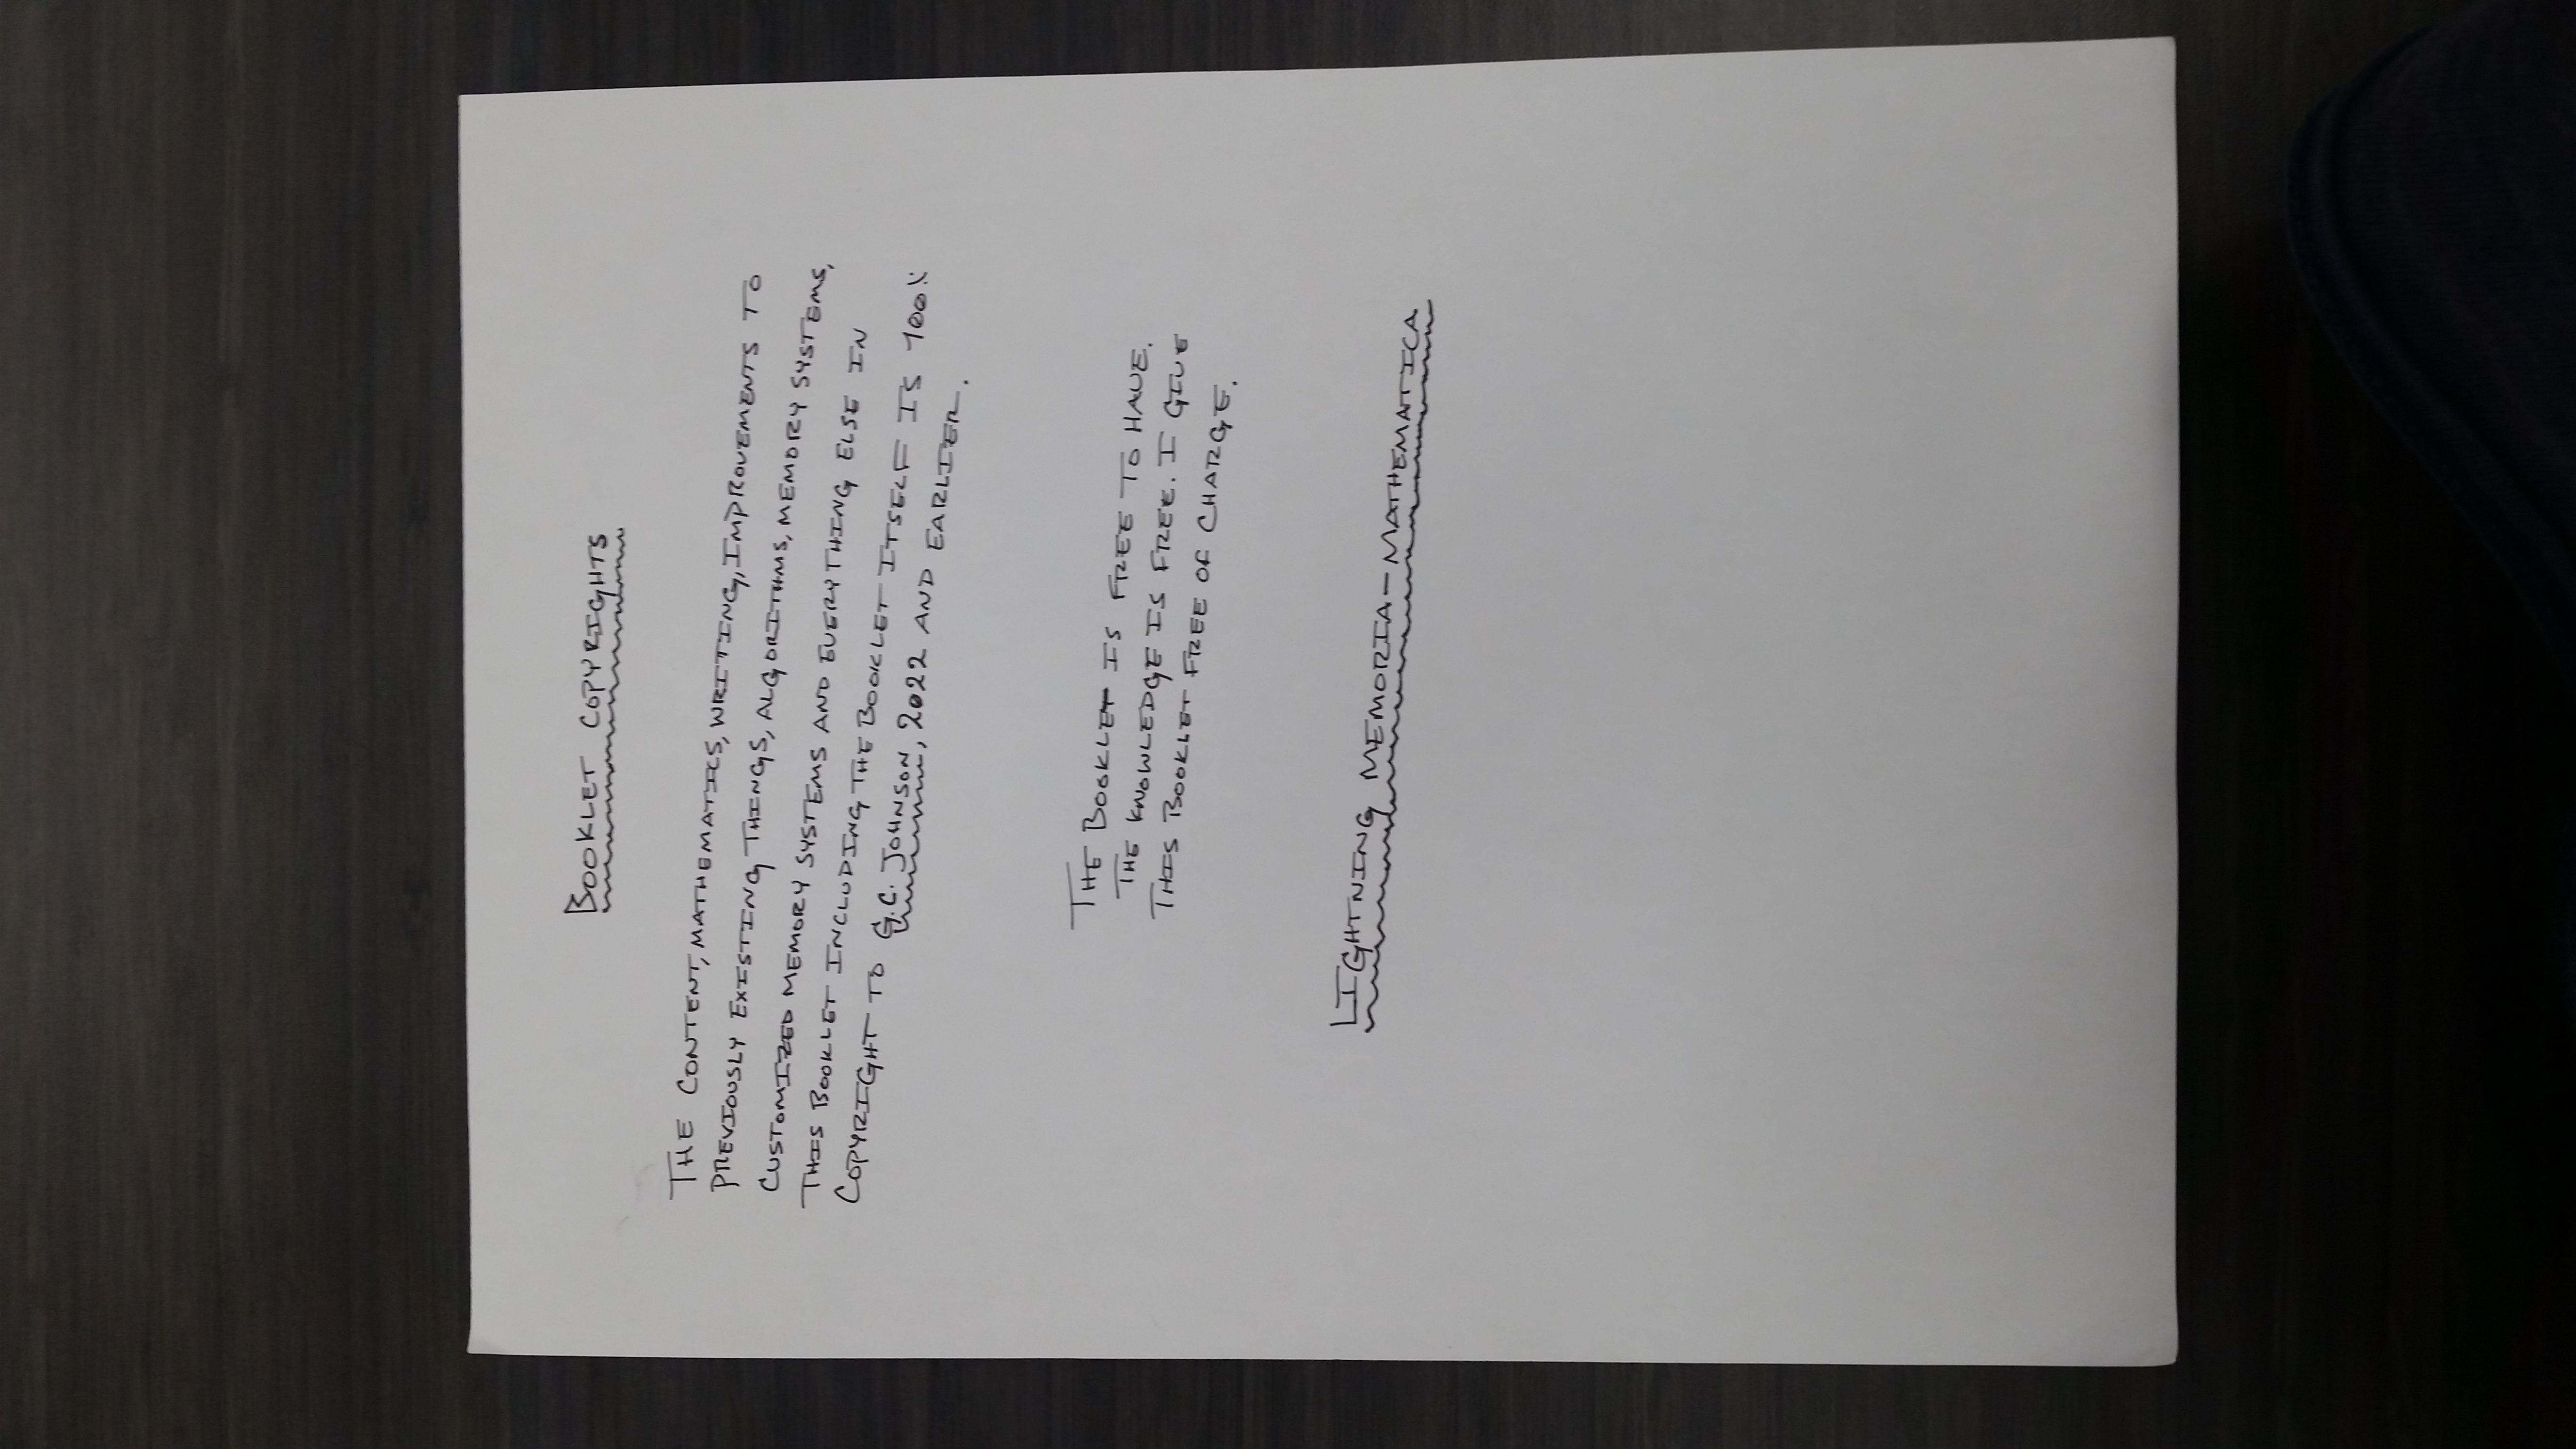 BOOKLET COPYRIGHTS
THE CONTENT, MATHEMATICS, WRITING, IMPROVEMENTS TO
PREVIOUSLY EXISTING THINGS, ALGORITHMS, MEMORY SYSTEMS,
CUSTOMIZED MEMORY SYSTEMS AND EVERYTHING ELSE IN
THIS BOOKLET INCLUDING THE BOOKLET ITSELF IS 100%
COPYRIGHT TO G.C. JOHNSON, 2022 AND EARLIER.
THE BOOKLET IS FREE TO HAVE.
THE KNOWLEDGE IS FREE. I GIVE
THIS BOOKLET FREE OF CHARGE.
LIGHTNING MEMORIA-MATHEMATICA